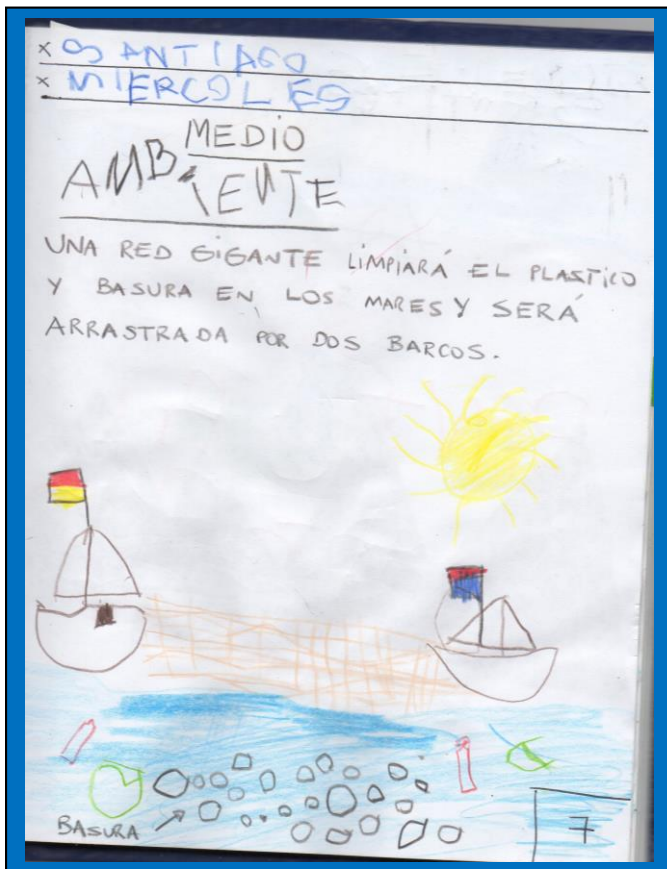 × SANTIAGO
× MIERCOLES
MEDIO
AMBIENTE
UNA RED GIGANTE LIMPIARÁ EL PLASTICO
Y BASURA EN LOS MARES Y SERÁ
ARRASTRADA POR DOS BARCOS.
BASURA
7